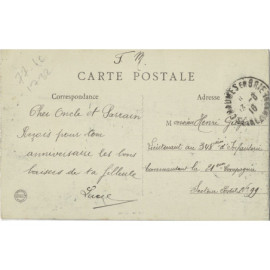 F. M.
CARTE POSTALE
Correspondance
Adresse
Cher Oncle et Parrain
Reçois pour ton
anniversaire les bons
baisers de ta filleule
Lucie
Monsieur Henri
Lieutenant au 348me d'Infanterie
Commandant la Compagnie
Secteur Postal No 99
CHAUMES EN BRIE